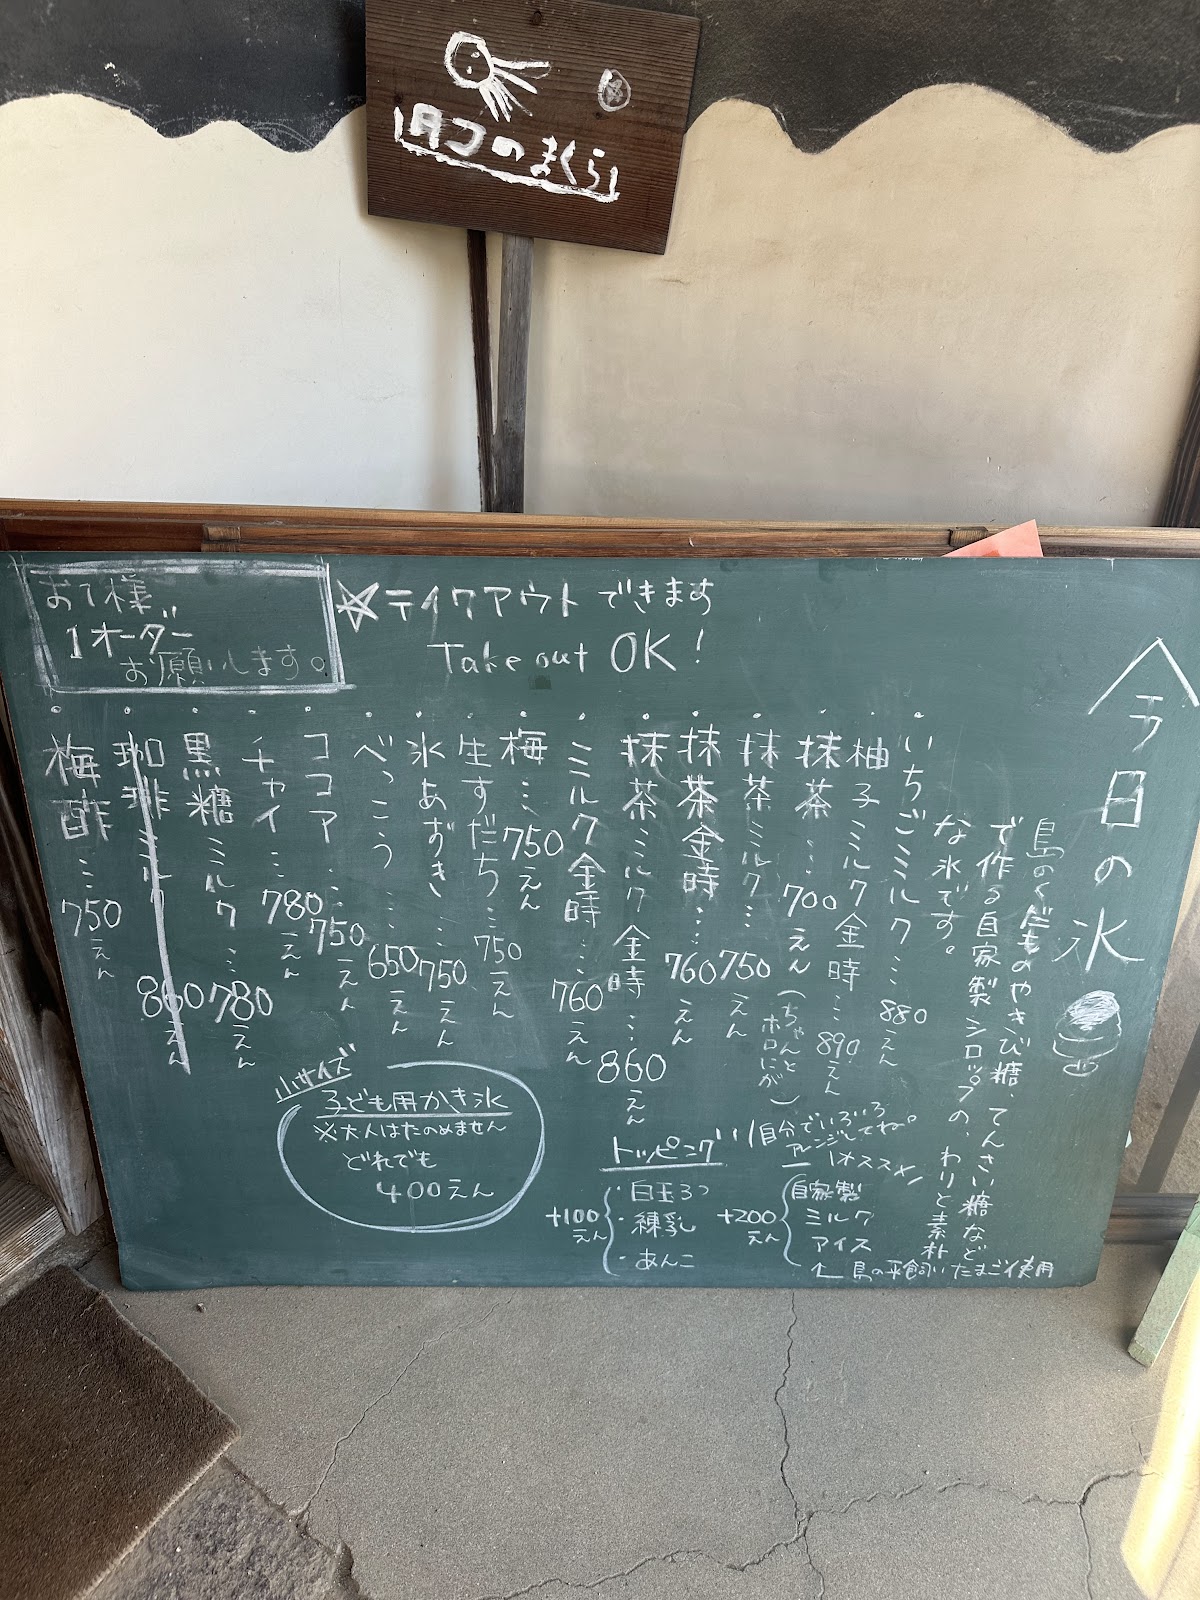 タコのまくら
今日の氷
島のくだものやきび糖、てんさい糖など
で作る自家製シロップの、わりと素朴
な氷です。
・いちごミルク…880えん
・柚子ミルク金時…890えん
・抹茶…700えん(ちゃんとホロにが)
・抹茶ミルク…750えん
・抹茶金時…760えん
・抹茶ミルク金時…860えん
・ミルク金時…760えん
・梅…750えん
・生すだち…750えん
・氷あずき…750えん
・べっこう…650えん
・ココア…750えん
・チャイ…780えん
・黒糖ミルク…780えん
・珈琲ミルク 860えん
・梅酢…750えん
☆テイクアウトできます
Take out OK!
1オーダー
お願いします。
小サイズ
子ども用かき氷
※大人はたのめません
どれでも
400えん
トッピング
自分でいろいろ
アレンジしてね。
オススメ
+100えん
・白玉3つ
・練乳
・あんこ
+200えん
自家製
ミルク
アイス
島の平飼いたまご使用